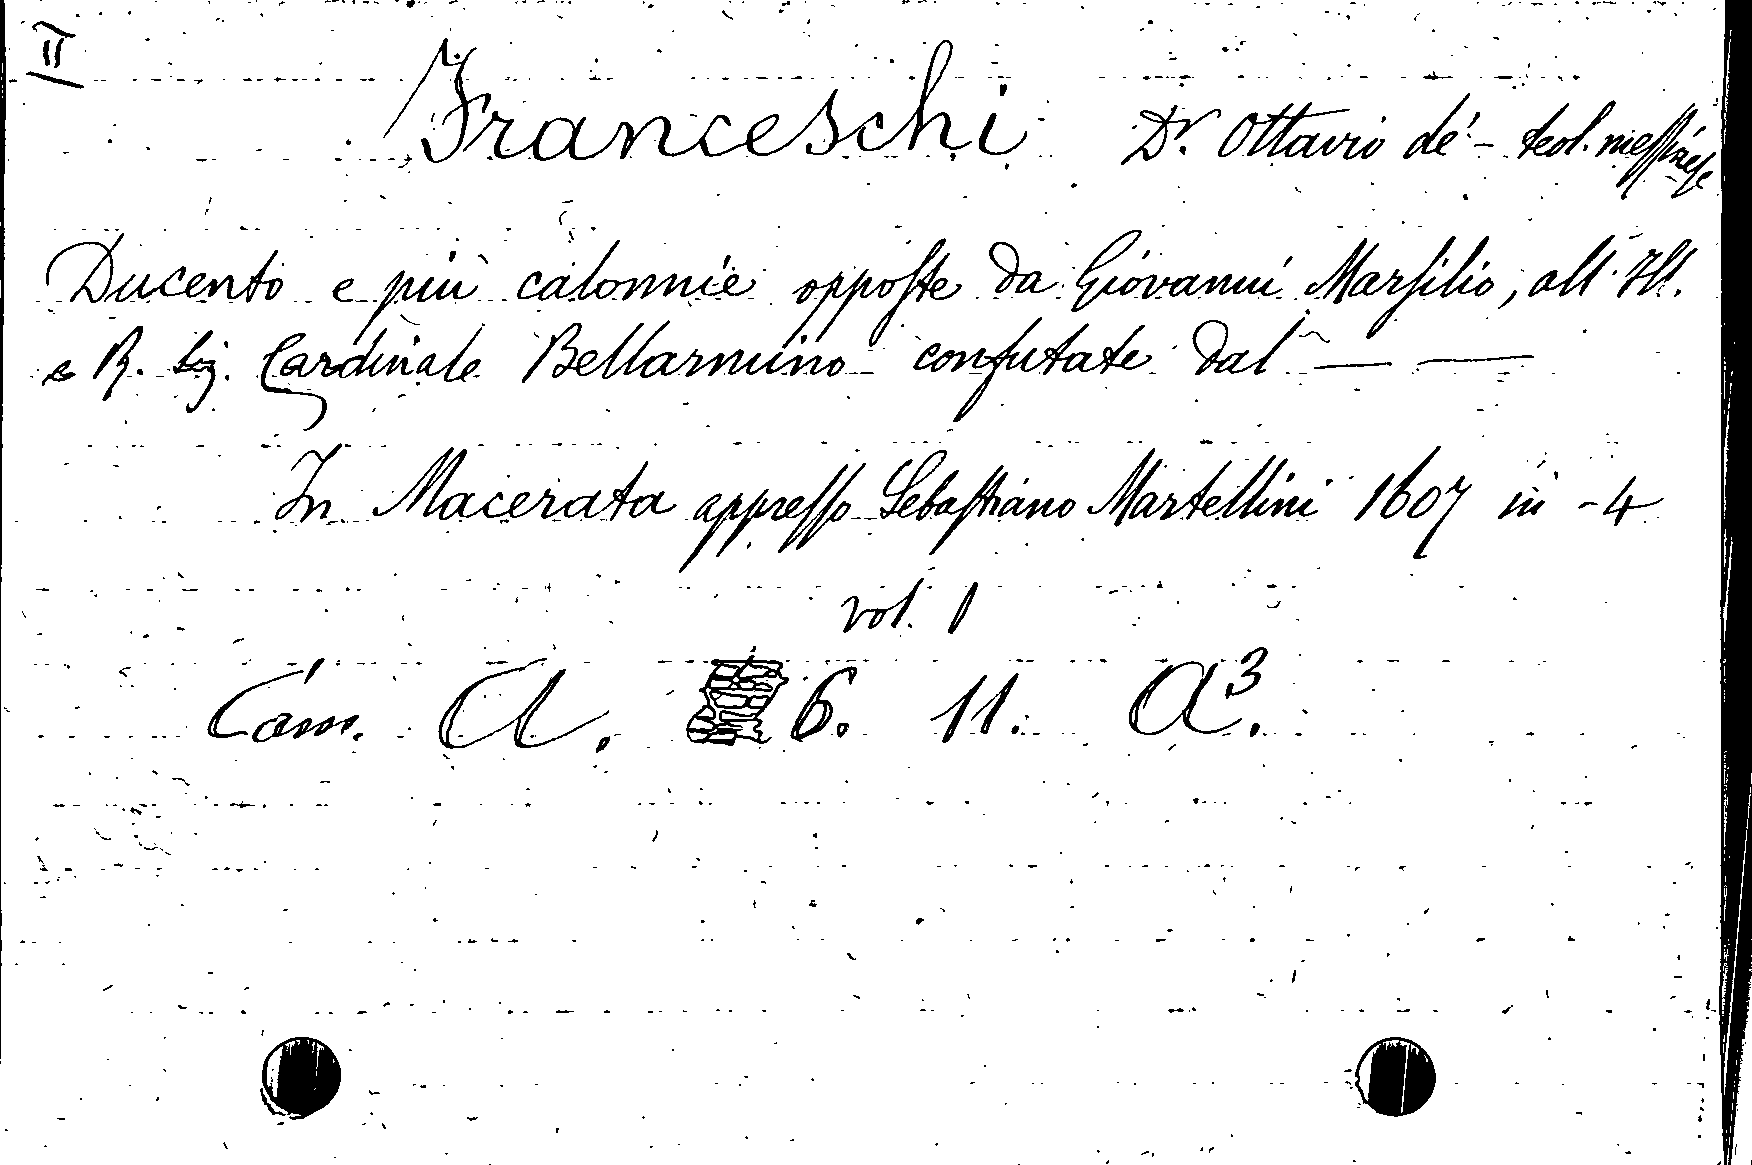 II
Franceschi Dr. Ottavio dé - teol. messinese
Ducento e più calonnie opposte da Giovanni Marsilio, all' Ill.
e R. Sig. Cardinale Bellarmino confutate dal — —
In Macerata appresso Sebastiano Martellini 1607 in - 4
vol. 1
Cam. A. 6. 11. A³.